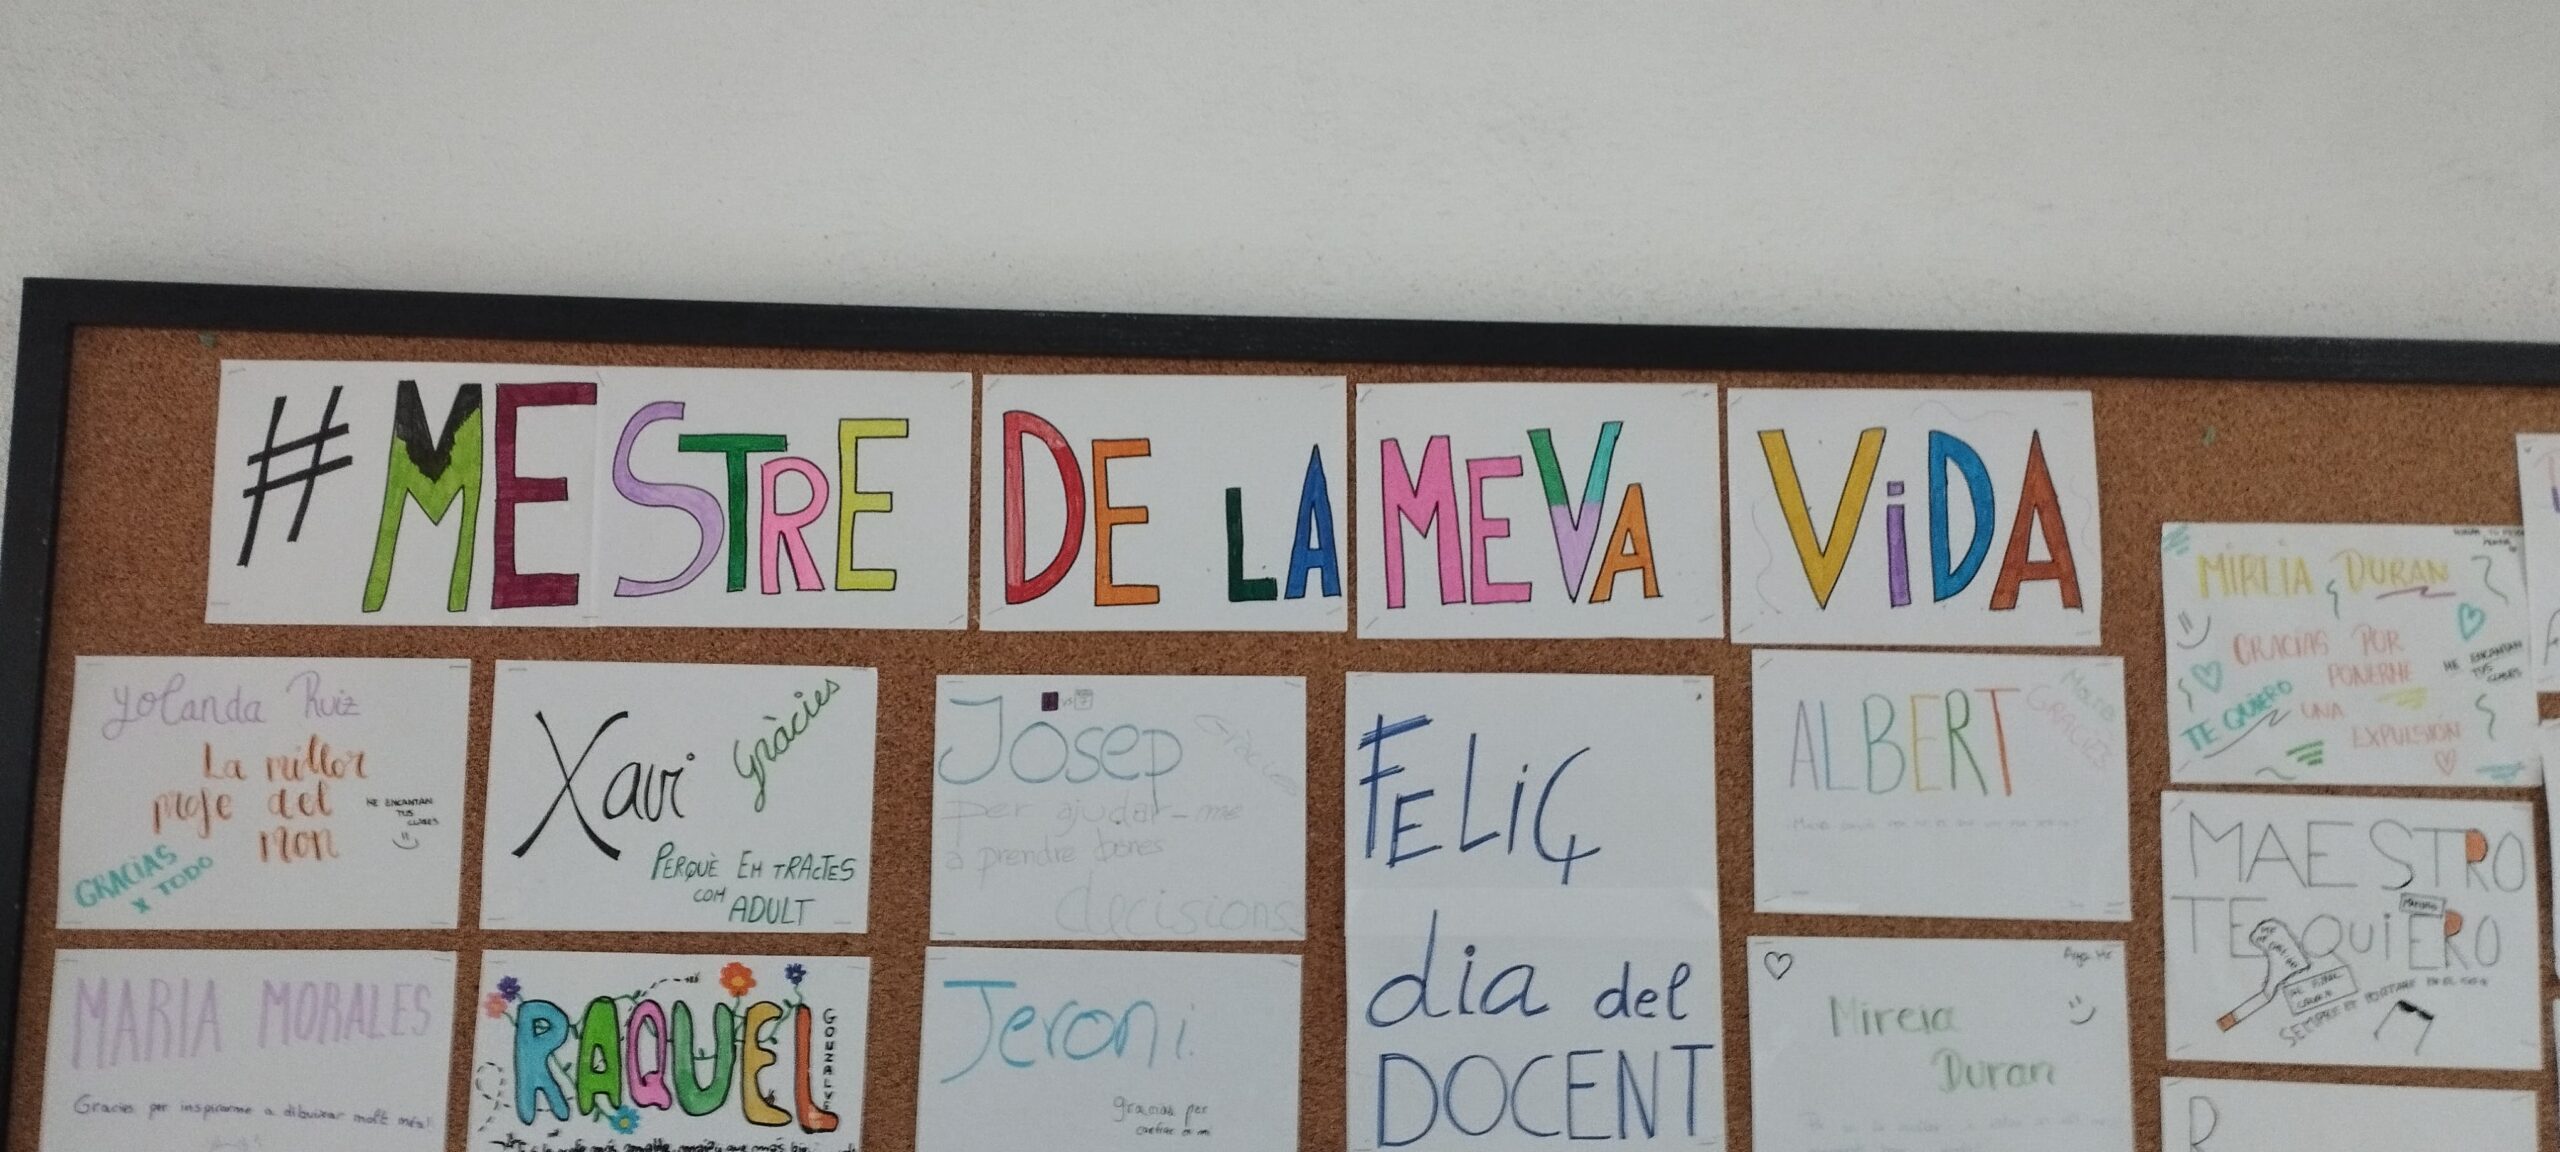 #MESTRE DE LA MEVA ViDA
Yolanda Ruiz
La millor
profe del
mon
ME ENCANTAN
TUS
CLASES
GRACIAS
x TODO
Xavi
Gràcies
PERQUÈ EM TRACTES
COM
ADULT
Josep
Gràcies
per ajudar-me
a prendre bones
decisions
FELIÇ
dia del
DOCENT
ALBERT
Molts
GRÀCIES
MIREIA DURAN
GRACIAS POR
PONERME
UNA
EXPULSIÓN
TE QUIERO
ME ENCANTAN
TUS
CLASES
MAESTRO
TE QUiERO
SIEMPRE
MARIA MORALES
Gracies per inspirarme a dibuixar molt més!
RAQUEL
GOUZALVE
Jeroni
gracias per
Mireia
Duran
R